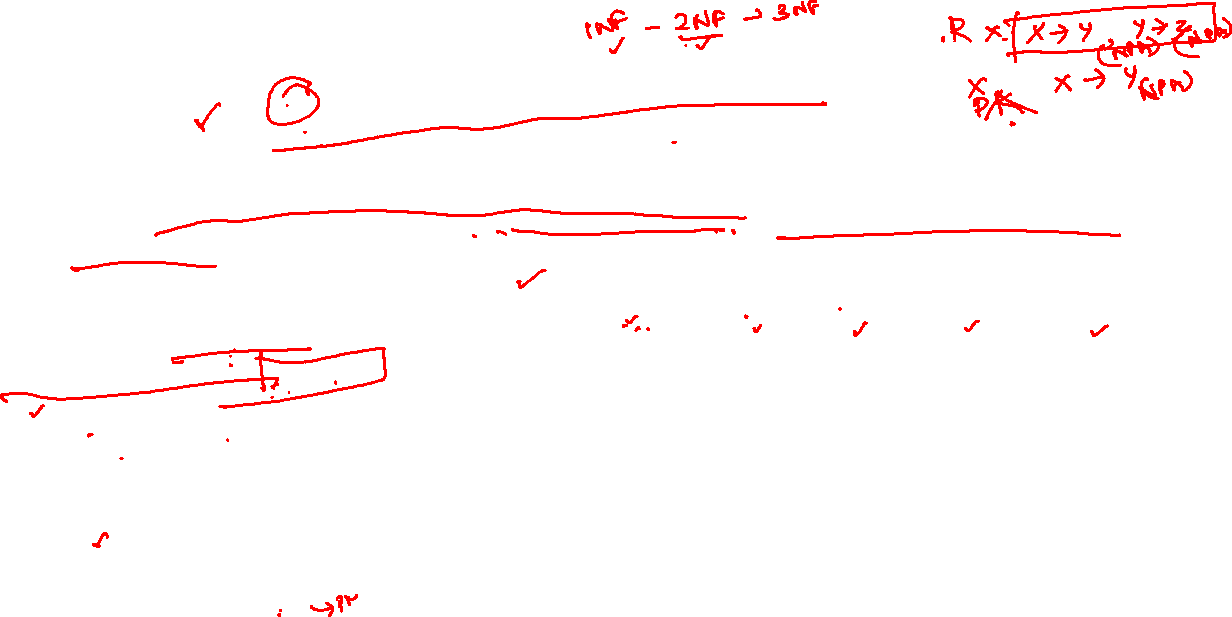 1NF - 2NF → 3NF
.R X: X → Y Y → Z
(NPA) (NPA)
X X → Y (NPA)
P/K